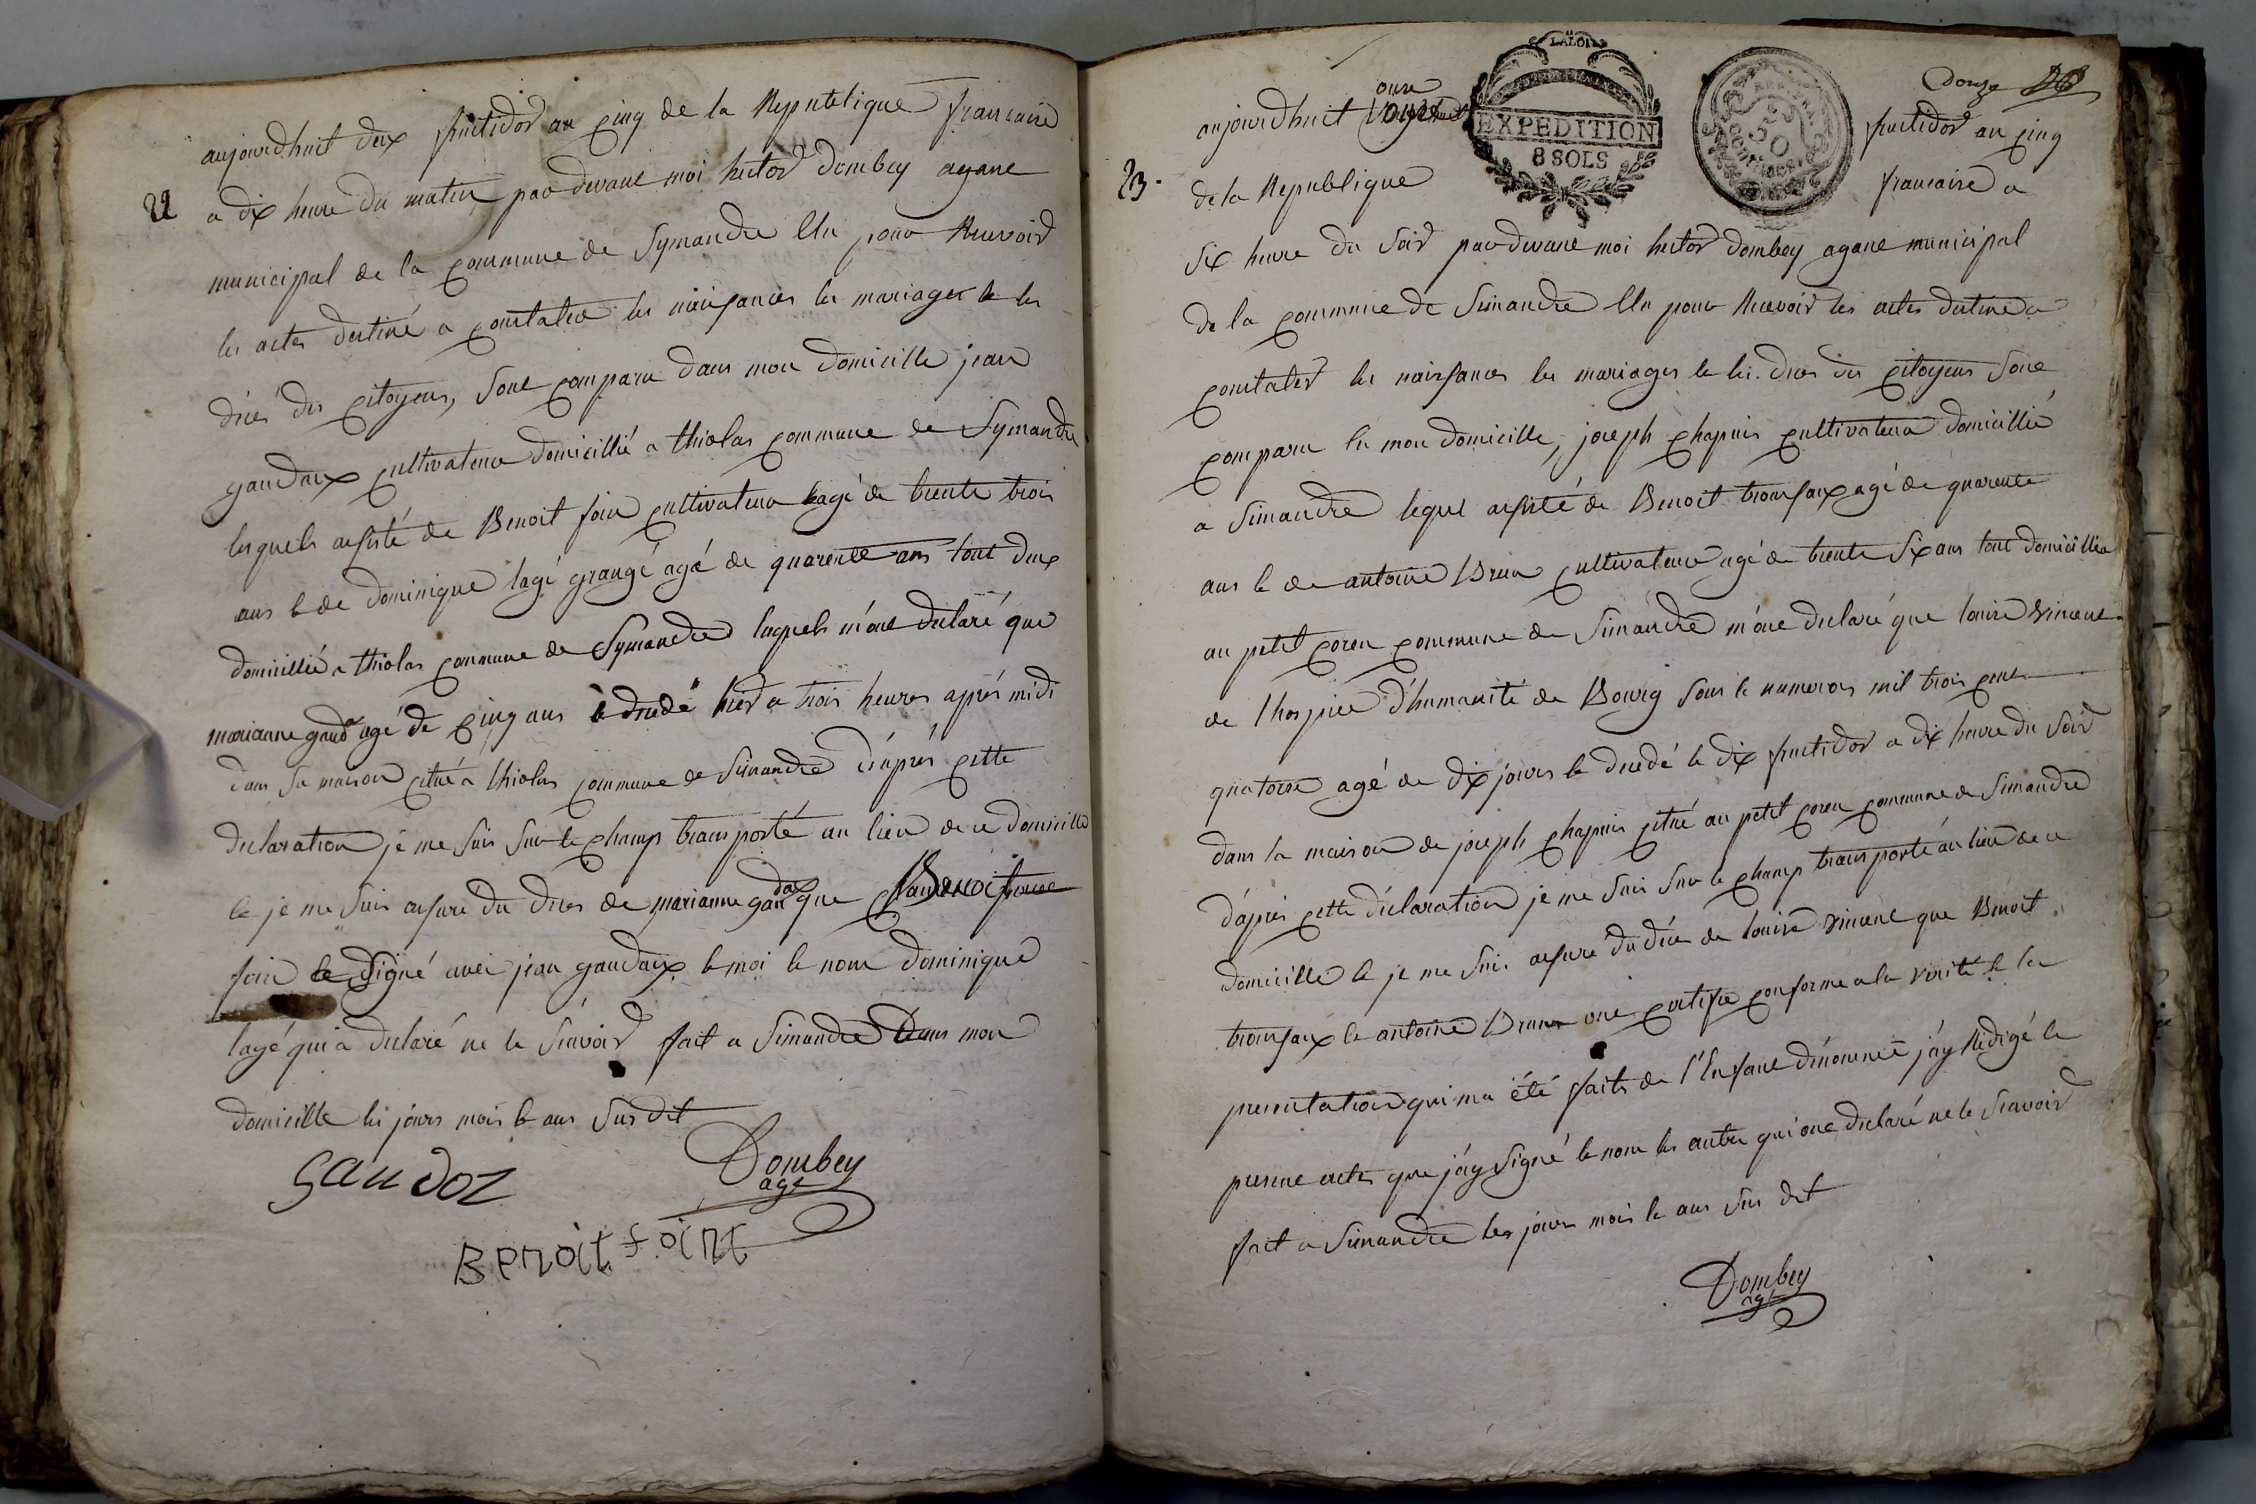 aujourdhuit deux fructidor an cinq de la Republique francaise
22
a dix heure du matin par devant moi hector dombey agant
municipal de la commune de Symandre Elu pour Recevoir
les actes destiné a constater les naissances les mariages et les
décés des citoyens, sont comparu dans mon domicille jean
gaudaux cultivateur domicillié a thiolas commune de Symandre
lesquels assisté de Benoit foin cultivateur agé de trente trois
ans et de dominique lagé grangé agé de quarente ans tout deux
domicillié a thiolas commune de Symandre lesquels m'ont declaré que
marianne gaud agé de cinq ans dcedé hier a trois heures aprés midi
dans sa maison citué a thiolas commune de Simandre d'aprés cette
declaration je me suis sur le champ transporté au lieu de ce domicille
et je me suis assuré du dces de marianne gaudax que
foin signé avec jean gaudaux et moi et nom dominique
lagé qui a declaré ne le scavoir fait a Simandre dans mon
domicille les jours mois et ans susdit
Gaudoz
Dombey
agt
Benoit foint
douze
onze
aujourdhuit
LA LOI
EXPEDITION
8 SOLS
50
CENTIMES
fructidor an cinq
23.
de la Republique
francaise a
six heure du soir par devant moi hector dombey agant municipal
de la commune de Simandre Elu pour Recevoir les actes destine a
constater les naissances les mariages et les dces des citoyens sont
comparu en mon domicille, joseph chapuis cultivateur domicillié
a Simandre lequel assisté de Benoit tronfaux agé de quarente
ans et de antoine Brun cultivateur agé de trente six ans tout domicillié
au petit coren commune de Simandre m'ont declaré que louise vincent
de l'hospice d'humanité de Bourg sous le numeros mil trois cent
quatorze agé de dix jours et dcedé le dix fructidor a dix heure du soir
dans la maison de joseph chapuis citué au petit coren commune de Simandre
d'aprés cette declaration je me suis sur le champ transporté au lieu de ce
domicille et je me suis assuré du déce de louise vincent que Benoit
tronfaux et antoine Brun ont certifié conforme a la verité et la
presentation qui ma été faite de l'Enfant dénommé j'ay Redigé le
present acte que j'ay signé et nom les autre qui ont declaré ne le scavoir
fait a Simandre les jours mois et ans sus dit
Dombey
agt